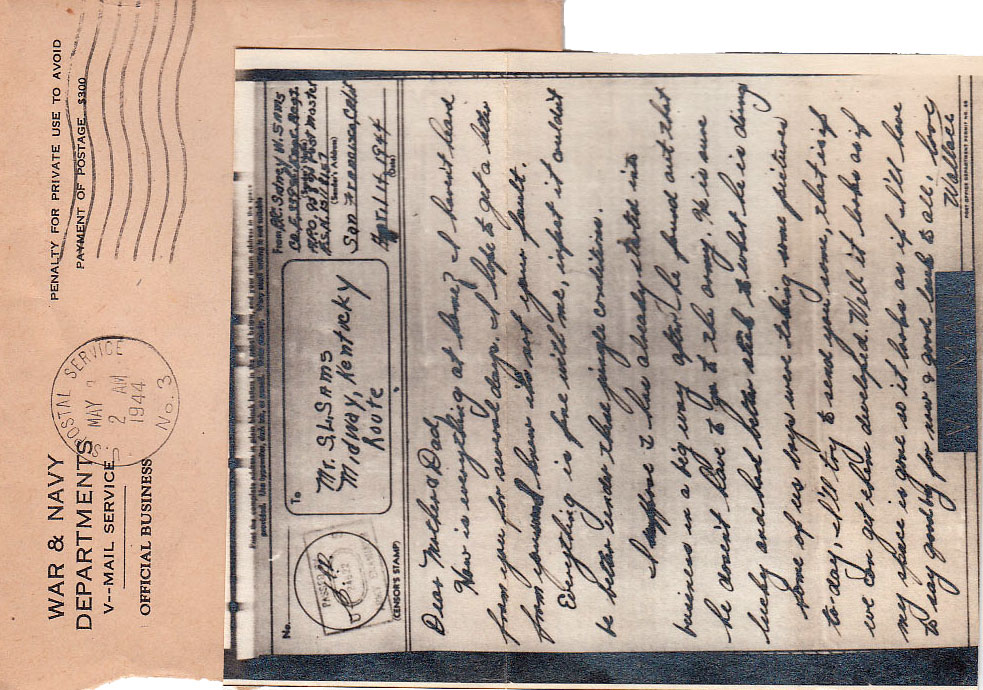 PENALTY FOR PRIVATE USE TO AVOID
PAYMENT OF POSTAGE, $300
U.S. POSTAL SERVICE
MAY
2 AM
1944
No. 3
WAR & NAVY
DEPARTMENTS
V--MAIL SERVICE
OFFICIAL BUSINESS
Print the complete address in plain block letters in the panel below, and your return address in the space
provided. Use typewriter, dark ink, or pencil.
No.
PASSED BY
(CENSOR'S STAMP)
To
Mr. S.L. SAMS
Midway, Kentucky
Route
From Pfc. Sidney W. SAMS
Co. E.
APO, Post Master
(Sender's Address)
San Francisco, Calif
Apr. 14 1944
(Date)
Dear Mother & Dad,
How is everything at home? I haven't heard
from you for several days. I hope to get a letter
from you soon, know its not your fault.
Everything is fine with me, infact it couldn't
be better under these jungle conditions.
I suppose has already started into
business in a big way after he found out that
he doesn't have to go to the army. He is sure
lucky and had better stick to what he is doing
Some of us boys were taking some pictures
to-day. I'll try to send you some, that is if
we can get them developed. Well it looks as if
my space is gone so it looks as if I'll have
to say goodby for now & good luck to all, love
Wallace
POST OFFICE DEPARTMENT PERMIT NO.
V-MAIL